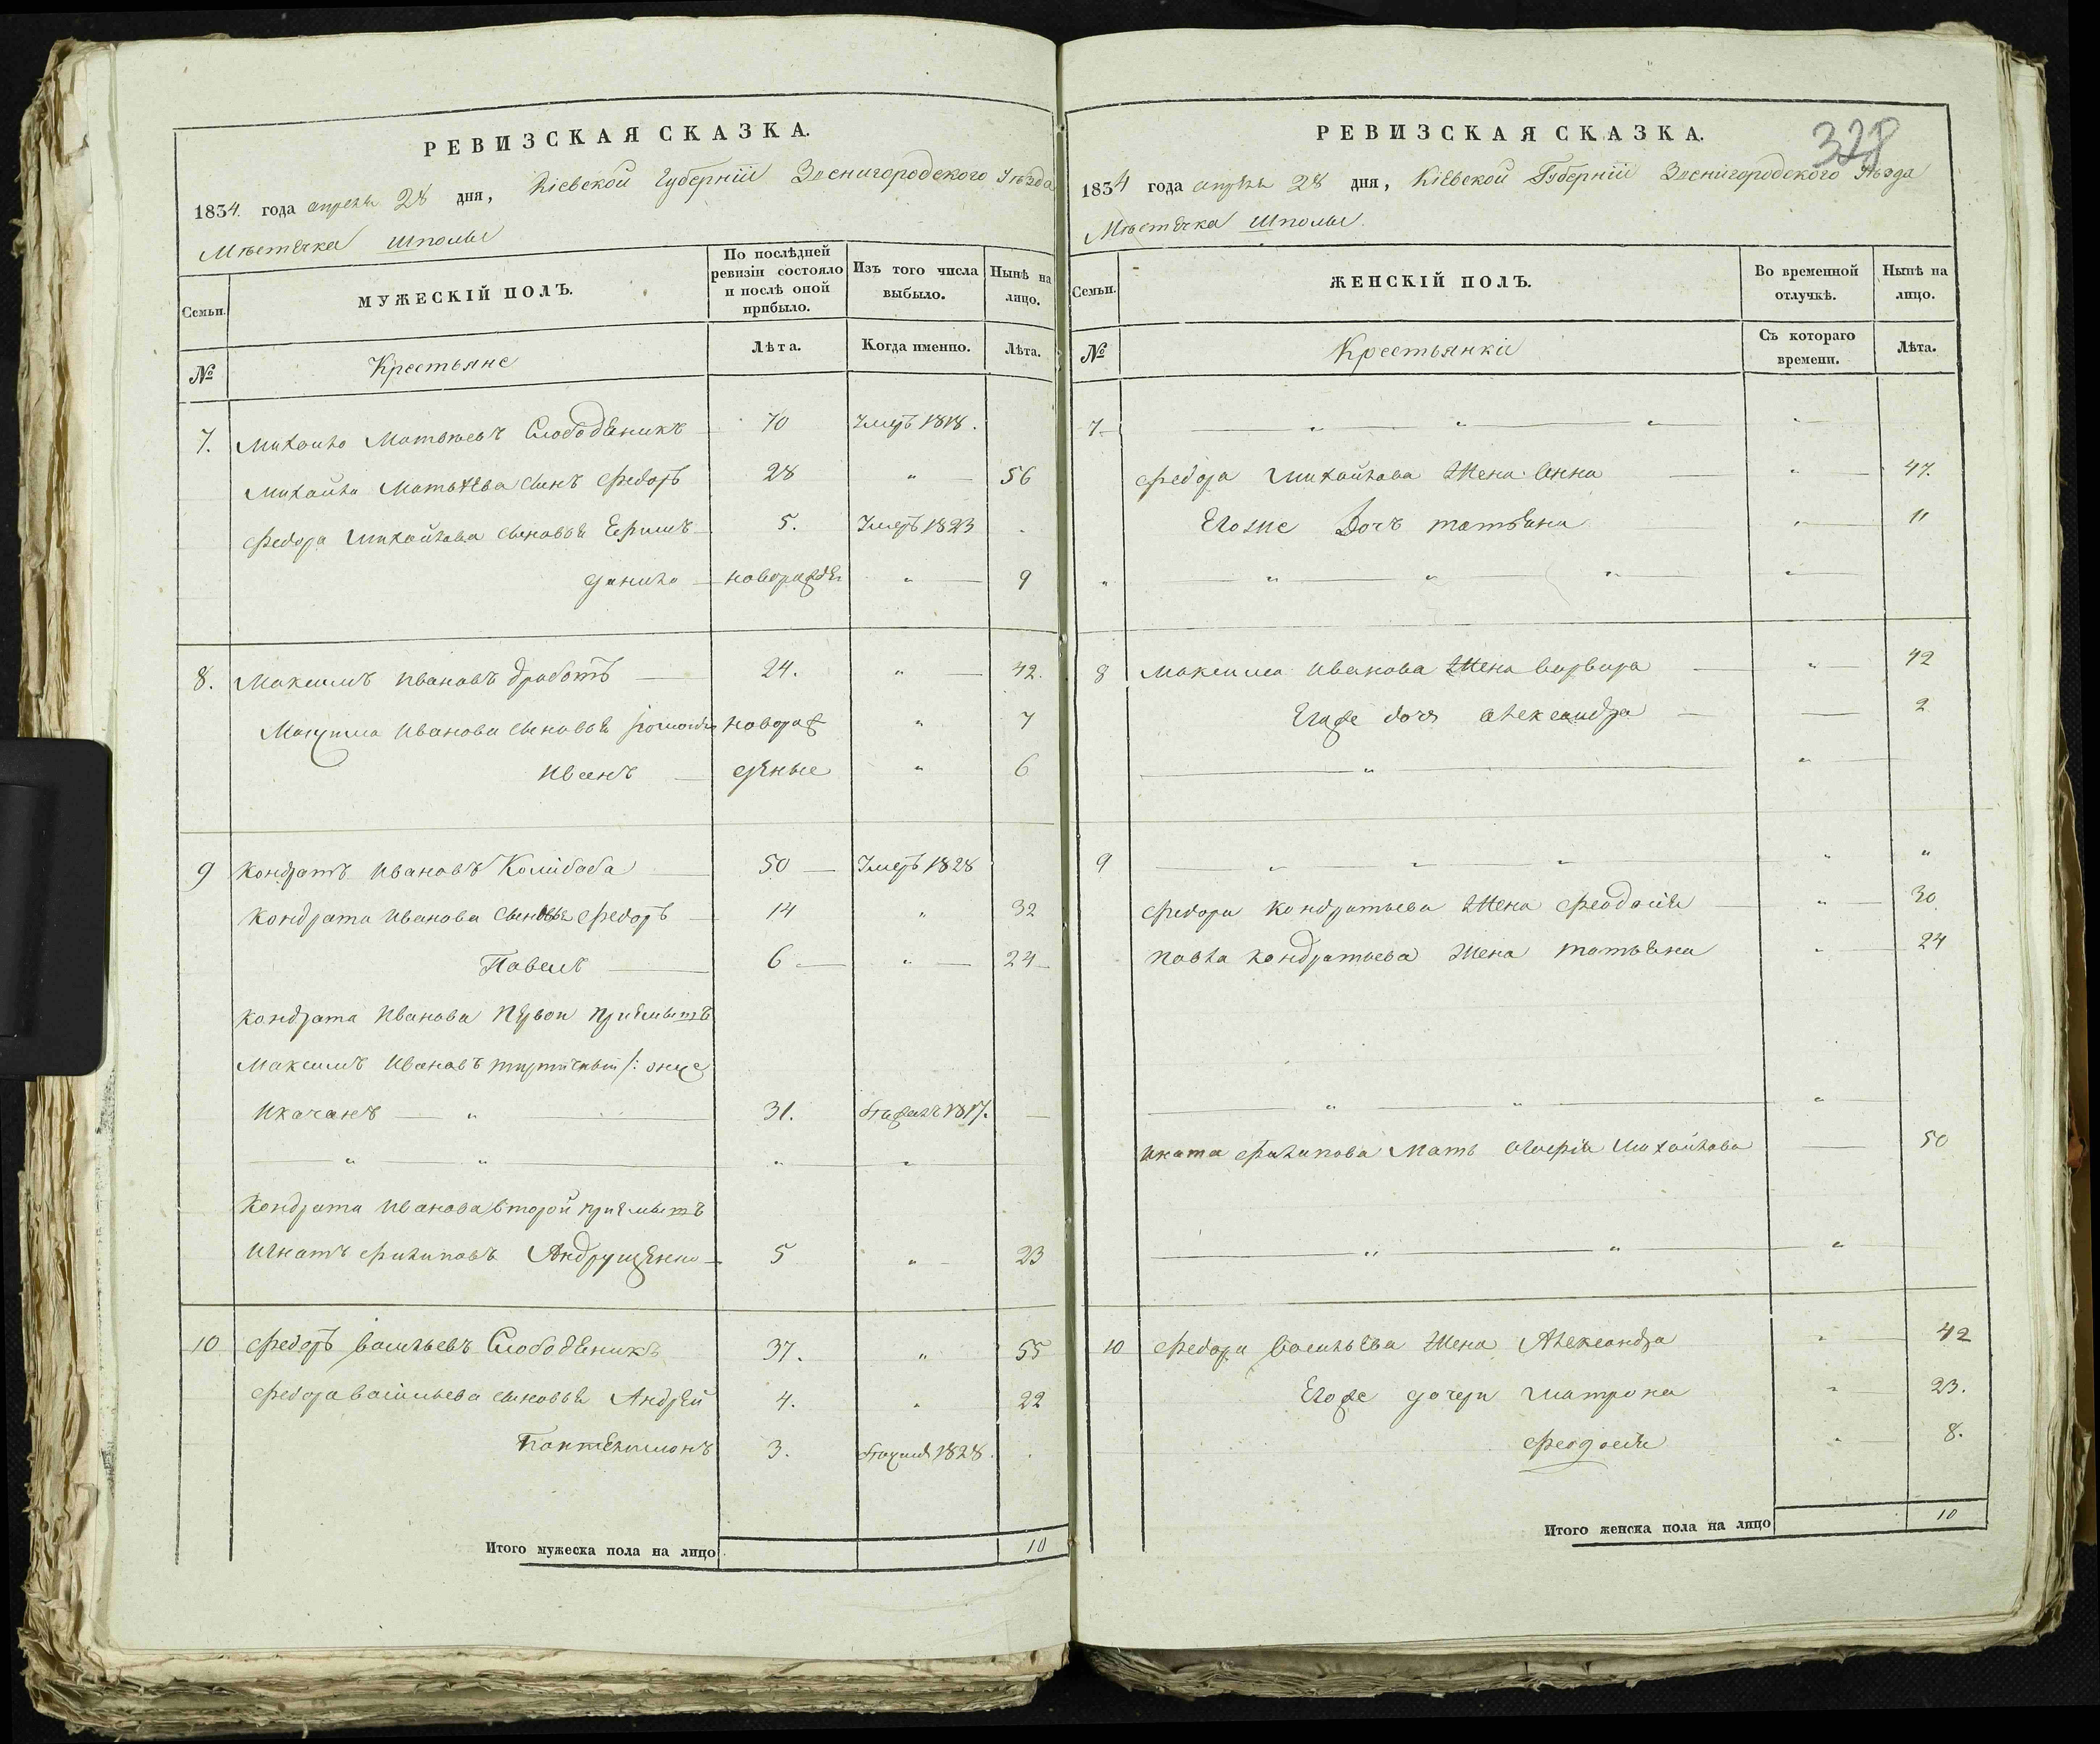 РЕВИЗСКАЯ СКАЗКА.
1834. года апреля 28 дня, Кіевской Губерніи Звенигородского Уѣзда
Мѣстечка Шполы
Семьи.
МУЖЕСКІЙ ПОЛЪ.
По послѣдней ревизіи состояло и послѣ оной прибыло.
Изъ того числа выбыло.
Нынѣ на лицо.
№
Крестьяне
Лѣта.
Когда именно.
Лѣта.
7. Михайло Матвѣевъ Слободяникъ 70 Умеръ 1818.
Михайла Матвѣева сынъ Федоръ 28 " 56
Федора Михайлова сыновья Ефимъ 5. Умеръ 1823
Данило новорожден " 9
8. Максимъ Ивановъ Дработъ 24. " 42.
Максима Иванова сыновья новорож " 7
Иванъ денные " 6
9 Кондратъ Ивановъ Колибаба 50 Умеръ 1828
Кондрата Иванова сыновья Федоръ 14 " 32
Павелъ 6 " 24
Кондрата Иванова Первой Приемышъ
Максимъ Ивановъ /: онже
Икачанъ " 31. 1817.
" " " "
Кондрата Иванова второй приемышъ
Игнатъ Филиповъ Андрущенко 5 " 23
10 Федоръ Васильевъ Слободяникъ 37. " 55
Федора Васильева сыновья Андрей 4. " 22
Пантелимонъ 3. 1828.
Итого мужеска пола на лицо 10
РЕВИЗСКАЯ СКАЗКА.
328
1834 года апрѣля 28 дня, Кіевской Губерніи Звенигородского Уѣзда
Мѣстечка Шполы.
Семьи.
ЖЕНСКІЙ ПОЛЪ.
Во временной отлучкѣ.
Нынѣ на лицо.
№
Крестьянки
Съ котораго времени.
Лѣта.
7 " " " "
Федора Михайлова Жена Анна " 47.
Егоже Дочъ татьяна " 11
" " " " "
8 Максима Иванова Жена Варвара " 42
Егоже дочь Александра 2
" "
9 " " " " "
Федора Кондратьева Жена Феодосия " 30
Павла Кондратьева Жена татьяна " 24
" " "
Игната Филипова Мать Михайлова 50
" " "
10 Федора Васильева Жена Александра " 42
Егоже дочери Матрона " 23.
Феодосия " 8.
Итого женска пола на лицо 10